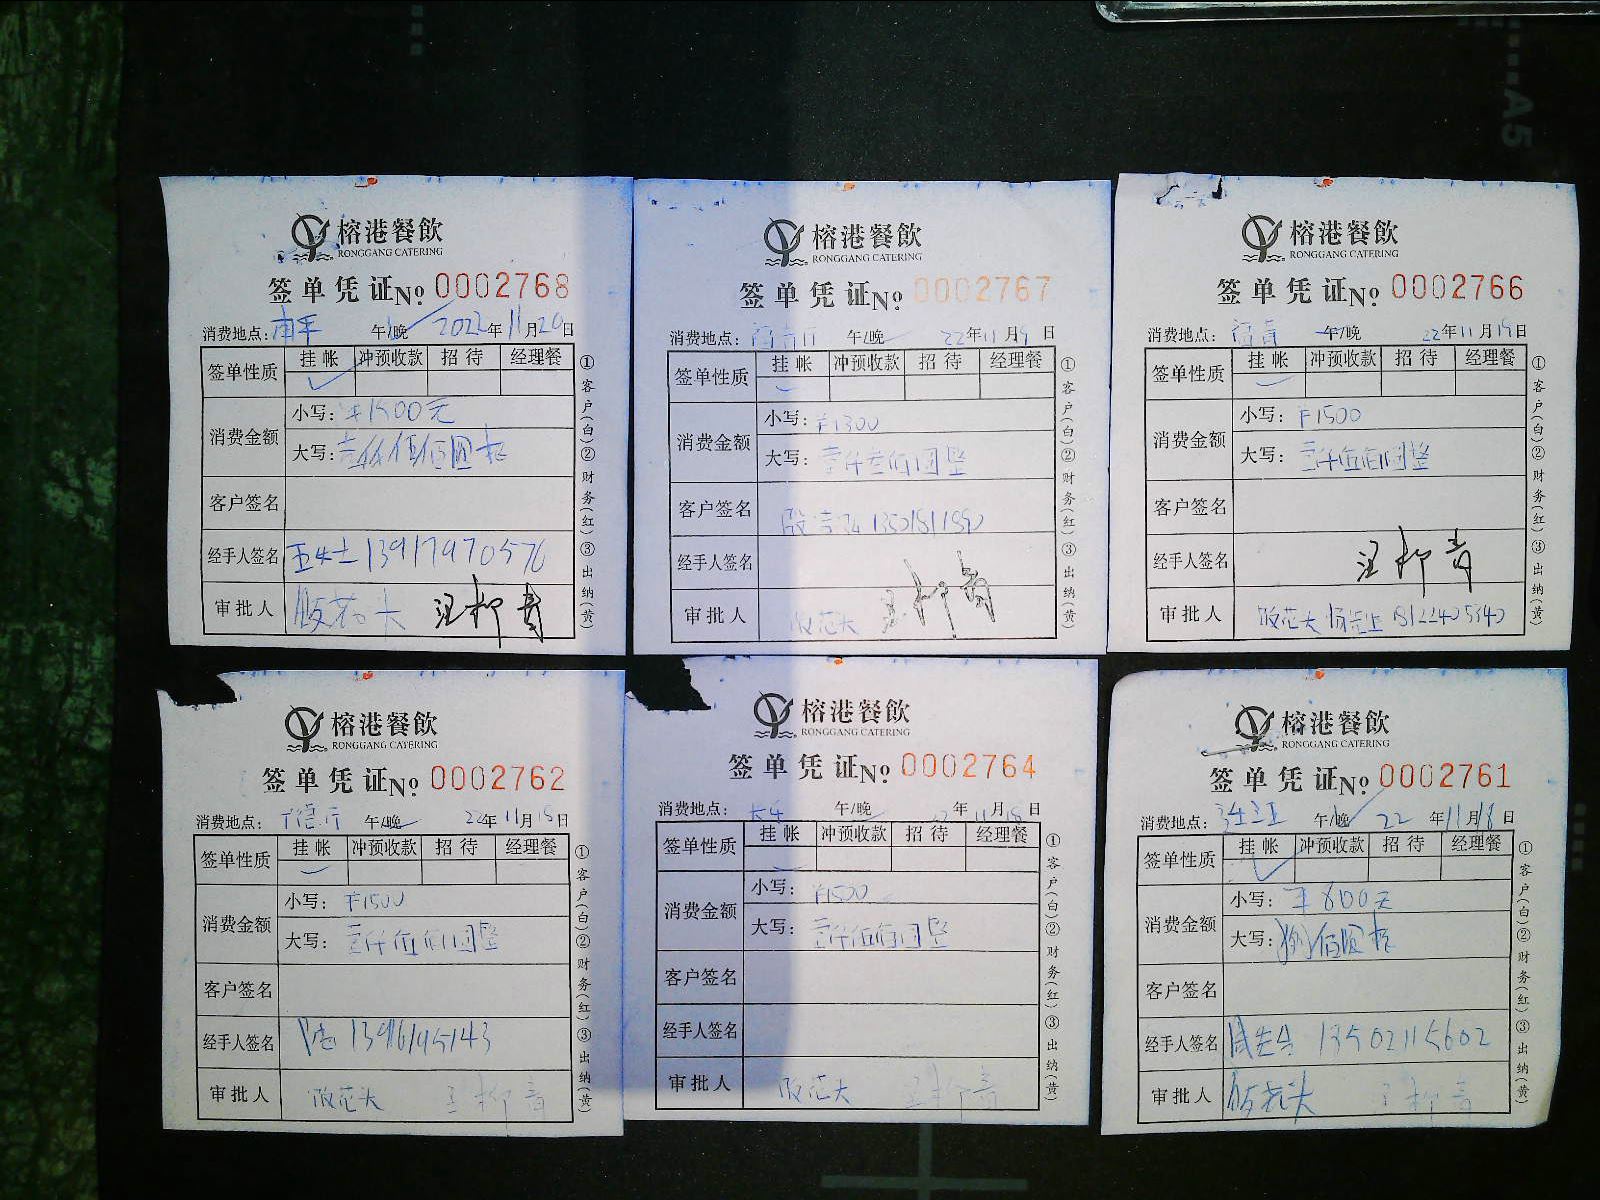 榕港餐飲
RONGGANG CATERING
签单凭证№ 0002768
消费地点：南平 午/晚 2022年11月20日
签单性质 挂帐 冲预收款 招待 经理餐
消费金额 小写：¥1500元
大写：壹仟伍佰圆整
客户签名
经手人签名 王女士 13917970576
审批人 汪柳青
①客户(白)②财务(红)③出纳(黄)
榕港餐飲
RONGGANG CATERING
签单凭证№ 0002767
消费地点： 午/晚 22年11月19日
签单性质 挂帐 冲预收款 招待 经理餐
消费金额 小写：¥1300
大写：壹仟叁佰圆整
客户签名
经手人签名
审批人
①客户(白)②财务(红)③出纳(黄)
榕港餐飲
RONGGANG CATERING
签单凭证№ 0002766
消费地点：福青 午/晚 22年11月19日
签单性质 挂帐 冲预收款 招待 经理餐
消费金额 小写：¥1500
大写：壹仟伍佰圆整
客户签名
经手人签名 汪柳青
审批人
①客户(白)②财务(红)③出纳(黄)
榕港餐飲
RONGGANG CATERING
签单凭证№ 0002762
消费地点： 午/晚 22年11月18日
签单性质 挂帐 冲预收款 招待 经理餐
消费金额 小写：¥1500
大写：壹仟伍佰圆整
客户签名
经手人签名
审批人
①客户(白)②财务(红)③出纳(黄)
榕港餐飲
RONGGANG CATERING
签单凭证№ 0002764
消费地点：长乐 午/晚 年11月18日
签单性质 挂帐 冲预收款 招待 经理餐
消费金额 小写：¥1500
大写：壹仟伍佰圆整
客户签名
经手人签名
审批人
①客户(白)②财务(红)③出纳(黄)
榕港餐飲
RONGGANG CATERING
签单凭证№ 0002761
消费地点： 午/晚 22年11月18日
签单性质 挂帐 冲预收款 招待 经理餐
消费金额 小写：¥800元
大写：捌佰圆整
客户签名
经手人签名 周先生 13502115602
审批人
①客户(白)②财务(红)③出纳(黄)
A5